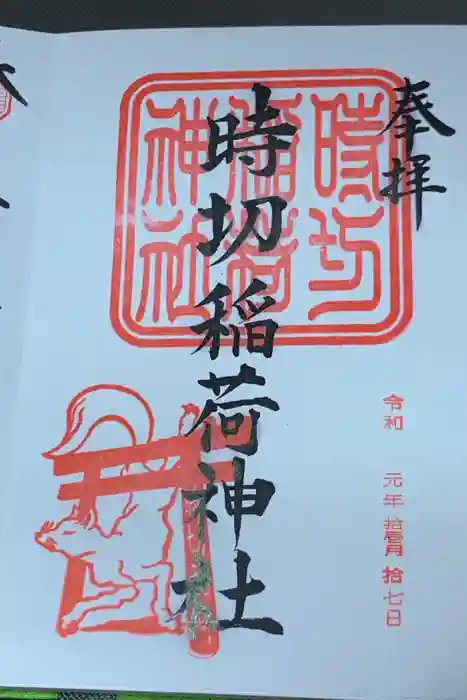 奉拝
時切稲荷神社
時切
稲荷
神社
令和 元年 拾壹月 拾七日